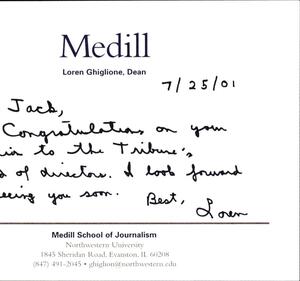 Medill
Loren Ghiglione, Dean
7/25/01
Jack,
Congratulations on your
to the Tribune's
of directors. I look forward
you soon. Best,
Loren
Medill School of Journalism
Northwestern University
1845 Sheridan Road, Evanston, IL 60208
(847) 491-2045 • ghiglion@northwestern.edu